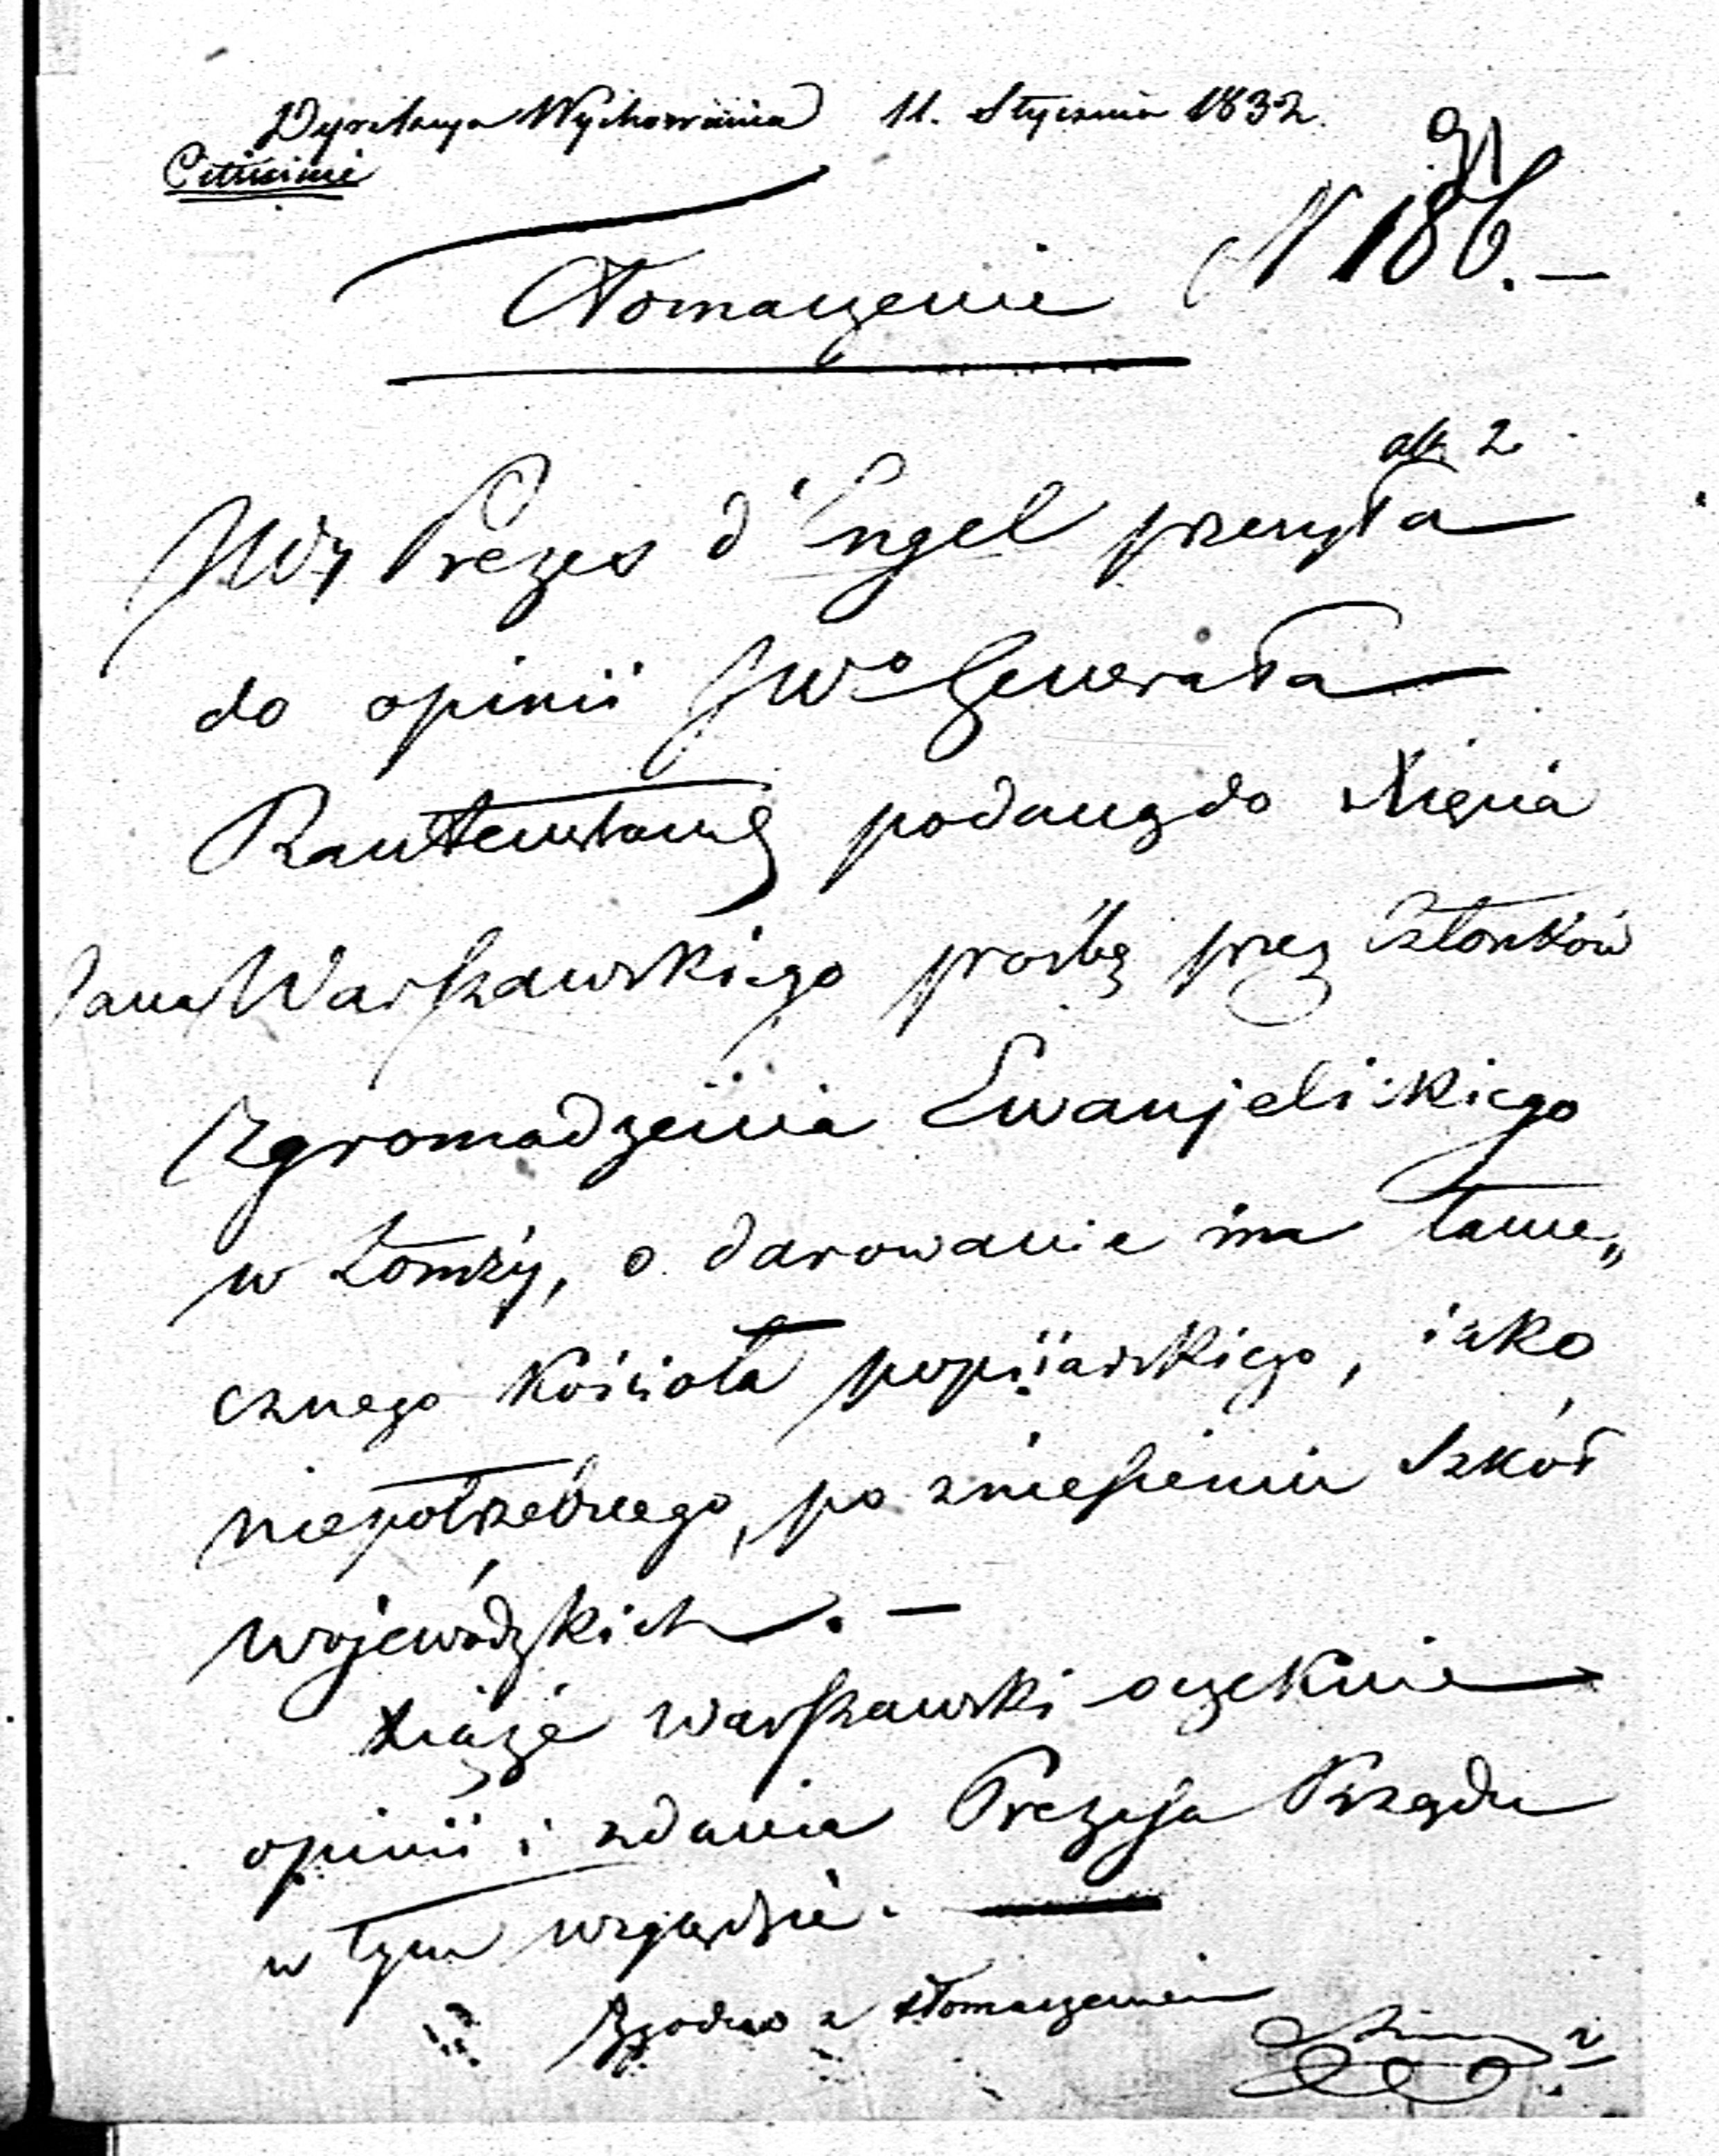 Dyrekcya Wychowania 11. Stycznia 1832.
91
N 186. —
Tłomaczenie
ad. 2
JWy Prezes d'Engel przesyła
do opinii JWo Generała
Rautenstrauch podaną do Xięcia
Jana Warszawskiego prośbę przez Członków
Zgromadzenia Ewanjelickiego
w Łomży, o darowanie im tame„
cznego Kościoła popijarskiego, iako
niepotrzebnego, po zniesieniu Szkół
wojewódzkich. —
Xiąże Warszawski oczekuie
opinii i zdania Prezesa Rządu
w tym względzie. —
Zgodno z tłomaczeniem